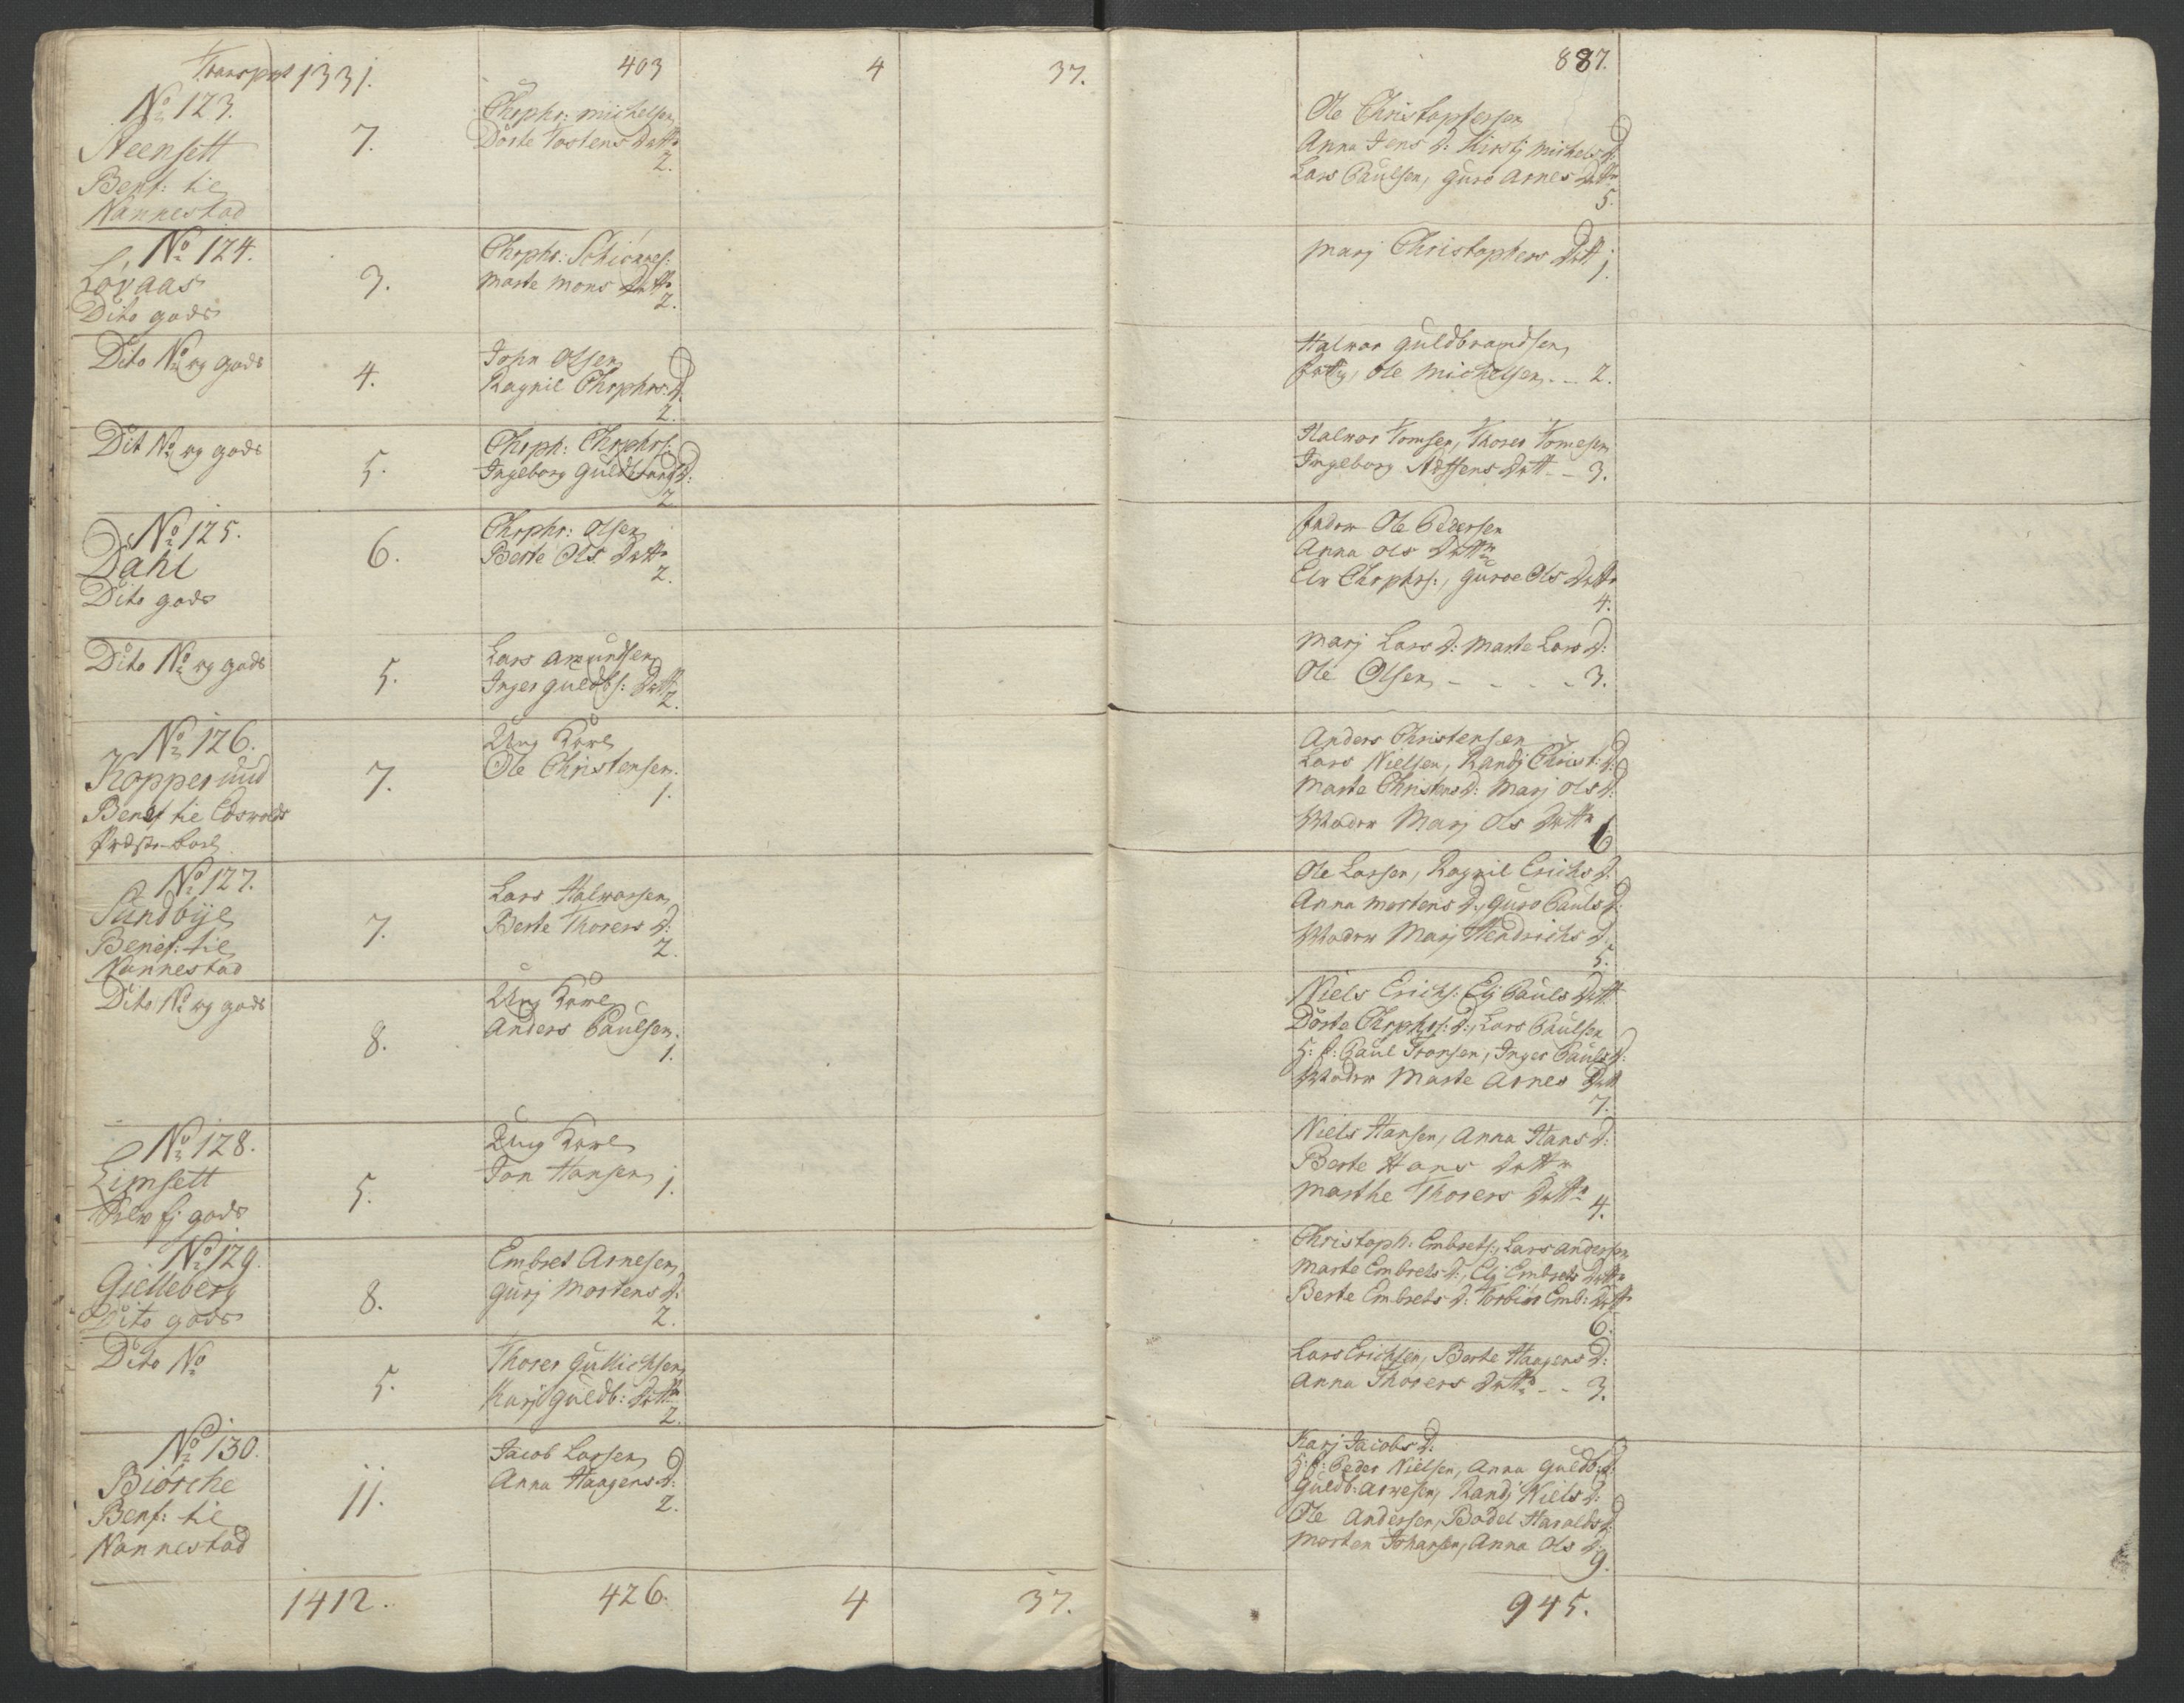 Transport 1331. 403 4 37. 887.
No 123.
Steensett
Benf: til
Nannestad
7.
Chrphr: Michelsen
Dorte Tostens Dattr
2.
Ole Christophersen
Anna Jens D: Kirstj Michels D:
Lars Paulsen, Guro Arnes Dattr
5.
No 124.
Lövaas
Dito gods
3.
Chrphr:
Marte Mons Dattr
2.
Marj Christophers Datt
1.
Dito No og gods
4.
John Olsen
Ragnil Chrphrs: D.
2.
Halvor Guldbrandsen
Fattig, Ole Michelsen - - 2.
Dit No og gods
5.
Chrph: Chrphrs:
Ingeborg Guldbrands D:
2
Halvor Tomsen, Thorer Tomesen
Ingeborg Adssens Datt - - 3.
No 125.
Dahl
Dito gods
6.
Chrphr: Olsen
Berte Ols Dattr
2.
Fader Ole Pedersen
Anna Ols Dattr
Elv Chrphrs:, Guroe Ols Dattr
4.
Dito No og gods
5.
Lars Amundsen
Inger Guldbs: Datt
2.
Marj Lars D: Marte Lars D:
Ole Olsen - - - - 3.
No 126.
Kopperuud
Benef til Edsvolds
Præste-boel
7.
Ung Karl
Ole Christensen.
1.
Anders Christensen
Lars Nielsen, Randj Christ: D:
Marte Christens D: Marj Ols D:
Moder Marj Ols Dattr
6
No 127.
Sundbÿe
Benef: til
Nannestad
7.
Lars Halvorsen
Berte Thorers D:
2.
Ole Larsen, Ragnil Erichs D:
Anna Mortens D:, Guro Pauls D:
Moder Marj Hendrichs D.
5.
Dito No og gods
8.
Ung Karl
Anders Paulsen.
1.
Niels Erichs: Elj Pauls Datt
Dorte Chrphrs: D:, Lars Paulsen
H: f: Paul Iversen, Inger Pauls D:
Moder Marte Arnes Datt
7.
No 128.
Limsett
Kloster gods
5.
Ung Karl
Jon Hansen 1.
Niels Hansen, Anna Hans D:
Berte Hans Dattr
Marthe Thorers Dattr
4.
No 129.
Gielleberg
Dito gods
8.
Embret Arnesen
Gurj Mortens D:
2.
Christoph: Embrets:, Lars Andersen
Marte Embrets D:, Elj Embrets Dattr
Berte Embrets D: Torbiör Emb: Dattr
6.
Dito No
5.
Thorer Gullichsen
Karj Guldb: Dattr
2.
Lars Erichsen, Berte Haagens D:
Anna Thorers Dattr - - 3.
No 130.
Biörche
Benf: til
Nannestad
11.
Jacob Larsen
Anna Haagens D:
2.
Karj Jacobs D:
H: f: Peder Nielsen, Anna Guldb: D:
Guldb: Arnesen, Randj Niels D:
Ole Andersen, Bodel Haralds D:
Morten Johansen, Anna Ols D:
9.
1412. 426. 4 37. 945.